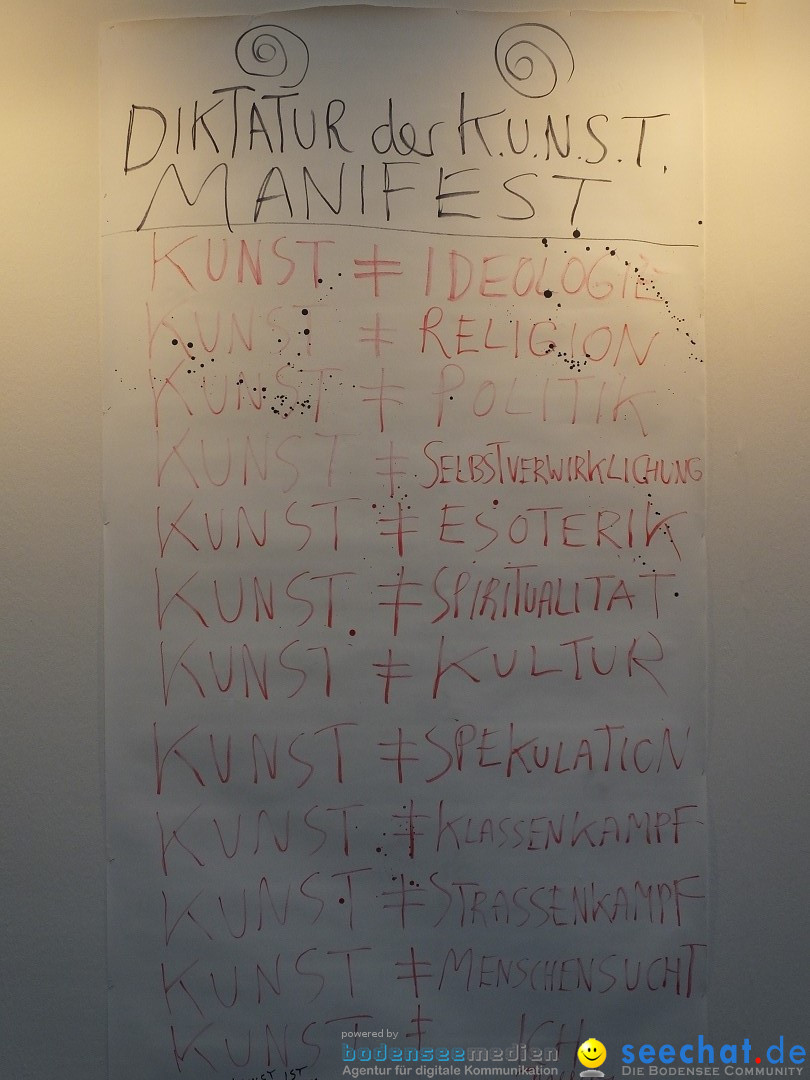 DIKTATUR der K.U.N.S.T.
MANIFEST
KUNST ≠ IDEOLOGIE
KUNST ≠ RELIGION
KUNST ≠ POLITIK
KUNST ≠ SELBSTVERWIRKLICHUNG
KUNST ≠ ESOTERIK
KUNST ≠ SPIRITUALITÄT
KUNST ≠ KULTUR
KUNST ≠ SPEKULATION
KUNST ≠ KLASSENKAMPF
KUNST ≠ STRASSENKAMPF
KUNST ≠ MENSCHENSUCHT
KUNST ≠ ICH
KUNST IST
powered by
bodenseemedien
Agentur für digitale Kommunikation
seechat.de
DIE BODENSEE COMMUNITY